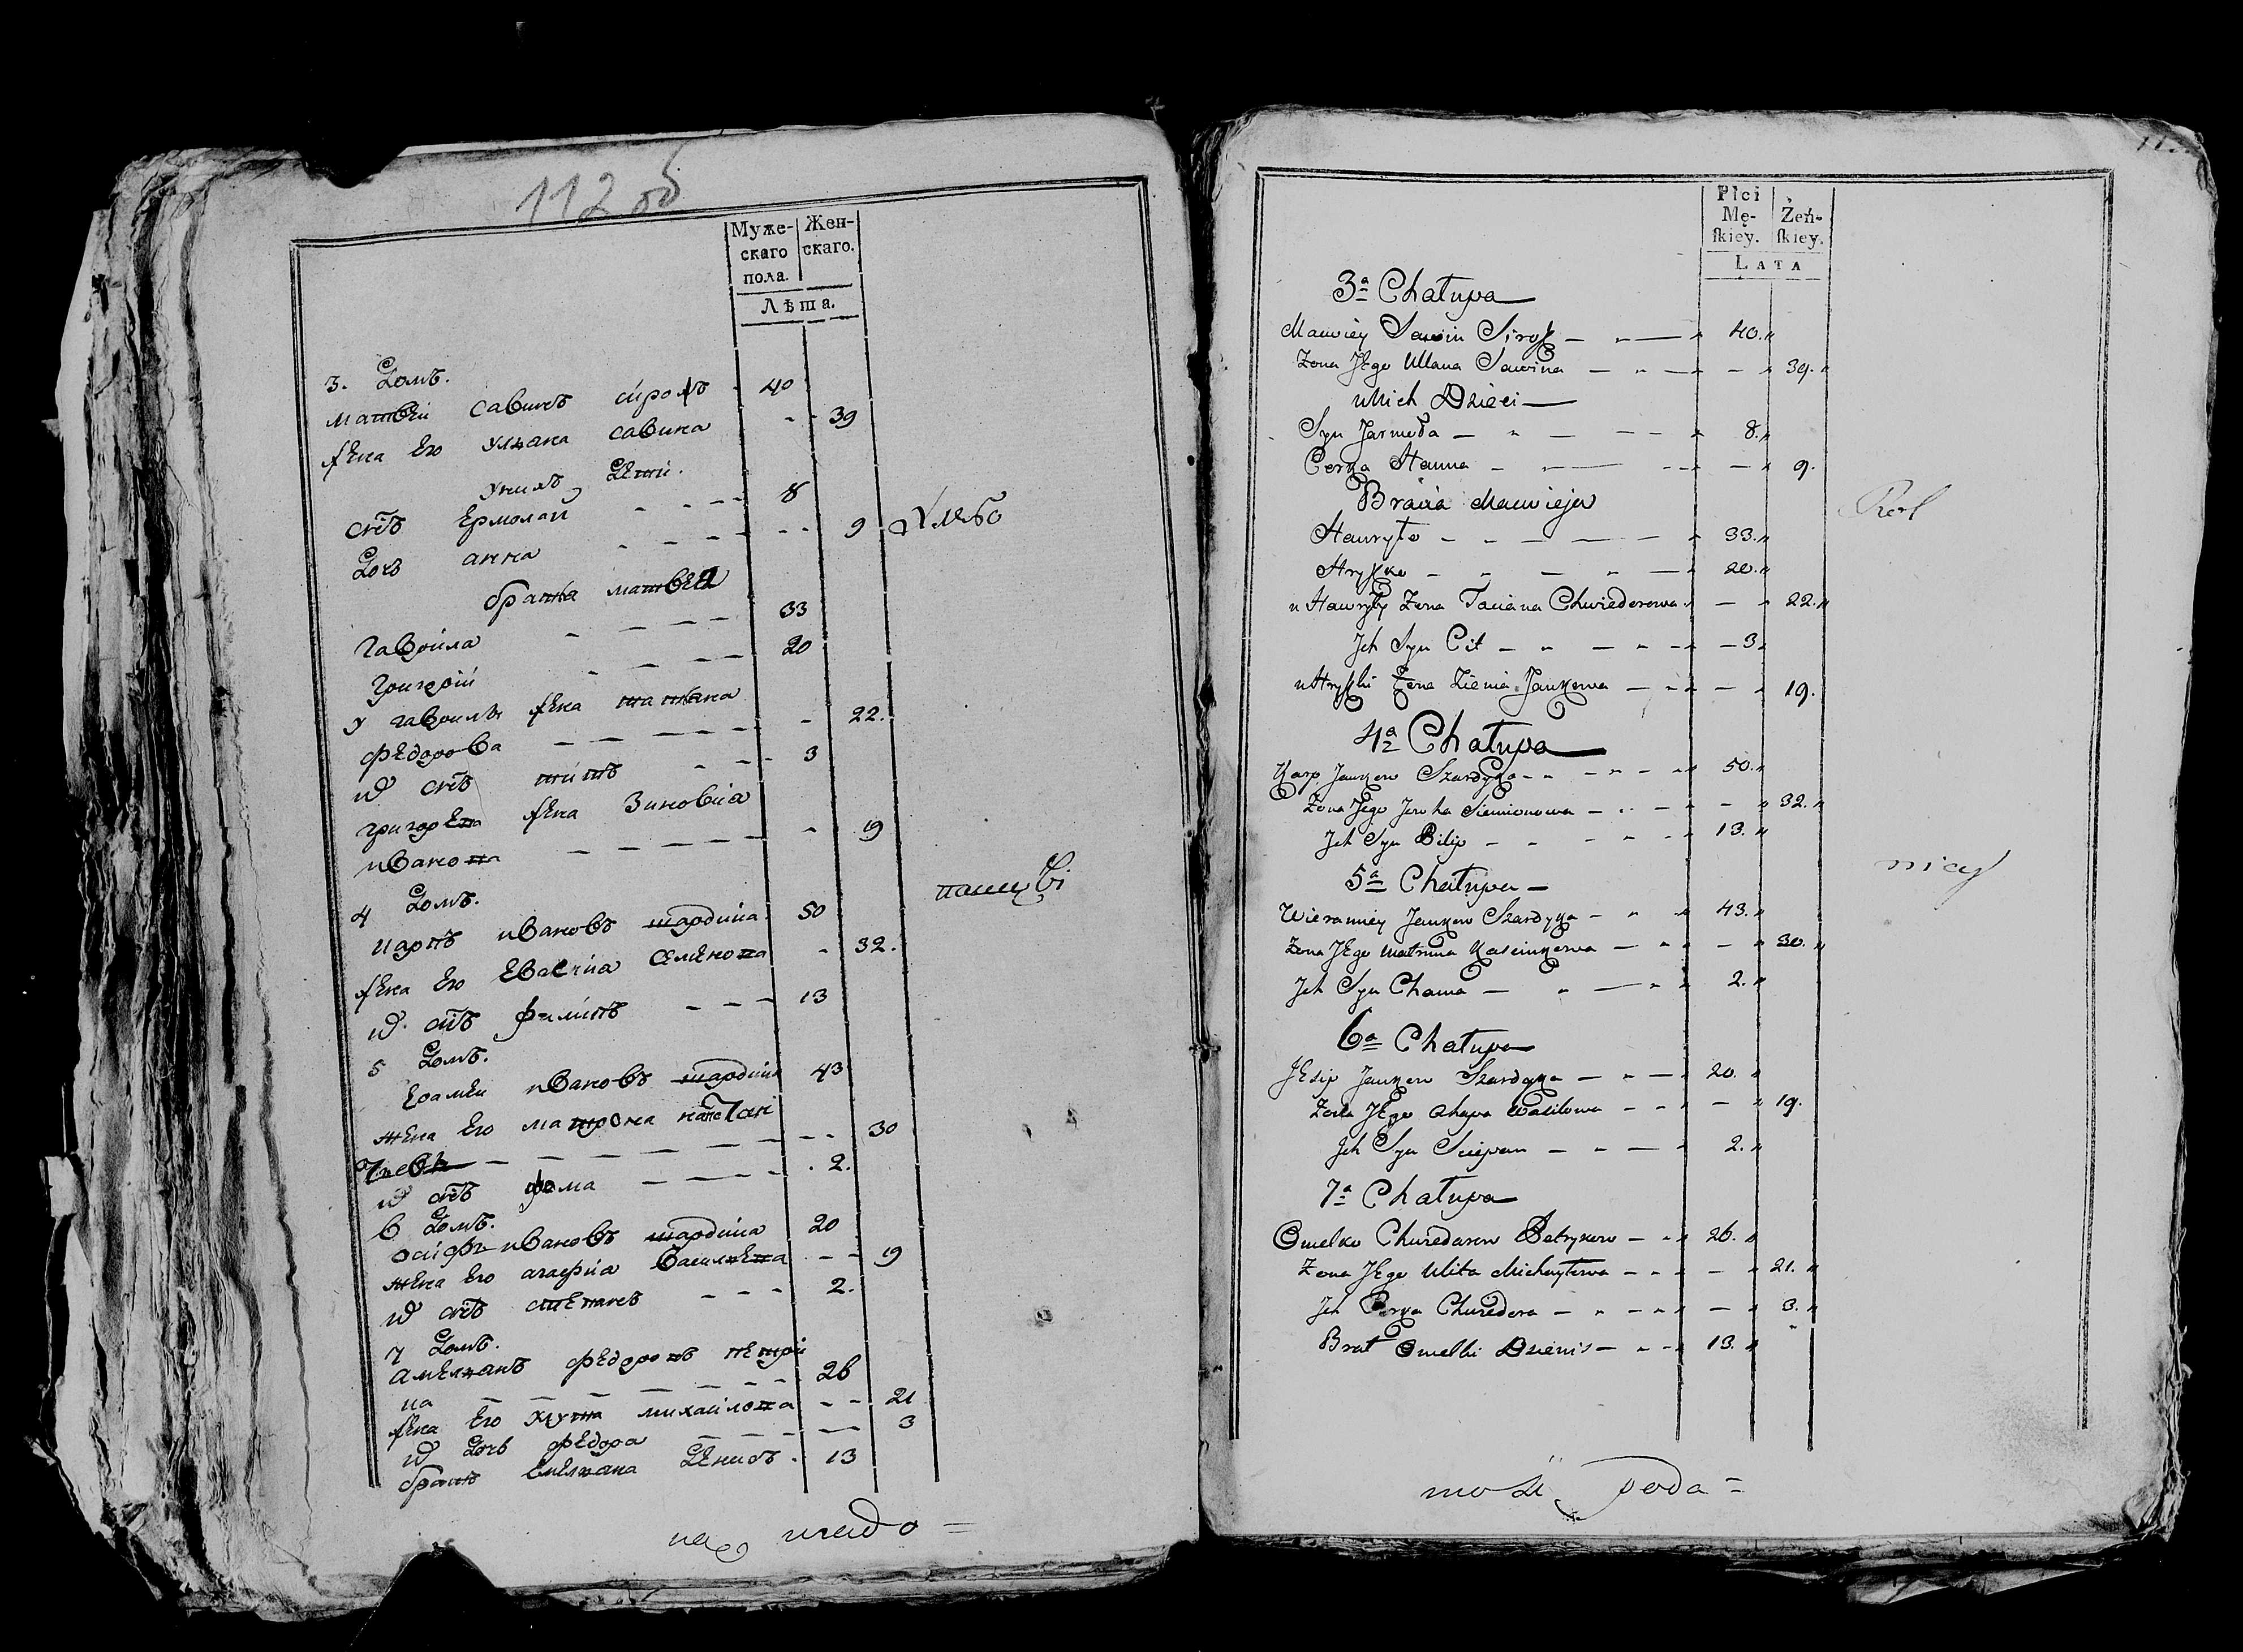 112 об
Муже-
скаго
пола.
Жен-
скаго.
Лѣта.
3. Домъ.
матвѣи савинъ сирожъ - 40
жена Его ульяна савина - - 39
унихъ дети.
снъ Ермолаи - - - 8
Дочь анна - - - - - 9
братья матвѣя
гаврила - - - - 33
григорій - - - - 20
у гаврилы жена татьяна
федорова - - - - - - 22.
их снъ титъ - - - 3
григорья жена Зиновия
иванова - - - - - - 19
4 Домъ.
карпъ ивановъ шардыка 50
жена Его Евгения семенова - 32.
их снъ филипъ - - - 13
5 Домъ.
Ерамеи ивановъ шардыка 43
жена Его матрона констан
тинова - - - - - - - - 30
их снъ фома - - - - 2.
6 Домъ.
осифъ ивановъ шардыка 20
жена Его агафия васильева - - 19
их снъ степанъ - - - 2.
7 Домъ.
амельянъ федоровъ петри
ка - - - - - - 26
жена Его улита михайлова - - 21
их Дочь федора - - - - 3
братъ Емельяна Денисъ. 13
11
Płci
Mę-
skiey.
Żeń-
skiey.
LATA
3a Chałupa
Mawiey Sawin Siroż - 40.
Żona Jego Ullana Sawina - - 39.
u Nich Dzieci
Syn Jarmoła - - - - 8.
Corka Hanna - - - - 9.
Bracia Mawieja
Hauryło - - - - - 33.
Hryszko - - - - - 20.
u Hauryły Żona Taciana Chwiedorowa - 22.
Jch Syn Cit - - - - - 3.
u Hryszki Żona Zienia Jankowa - - - 19.
4a Chałupa
Karp Jankow Szardyka - - - - 50.
Żona Jego Jewka Siemionowa - - - 32.
Jch Syn Bilip - - - - 13.
5a Chałupa
Wieramiey Jankow Szardyka - - 43.
Żona Jego Matruna Kasciukowa - - - 30.
Jch Syn Chama - - - - 2.
6a Chałupa
Jesip Jankow Szardyka - - - 20.
Żona Jego Ahapa Wasilowa - - - - 19.
Jch Syn Sciepan - - - 2.
7a Chałupa
Omelko Chwiedarow Petrykow - - 26.
Żona Jego Ulita Michayłowa - - - - 21.
Jch Corka Chwiedora - - - - - 3.
Brat Omelki Dzienis - - - 13.